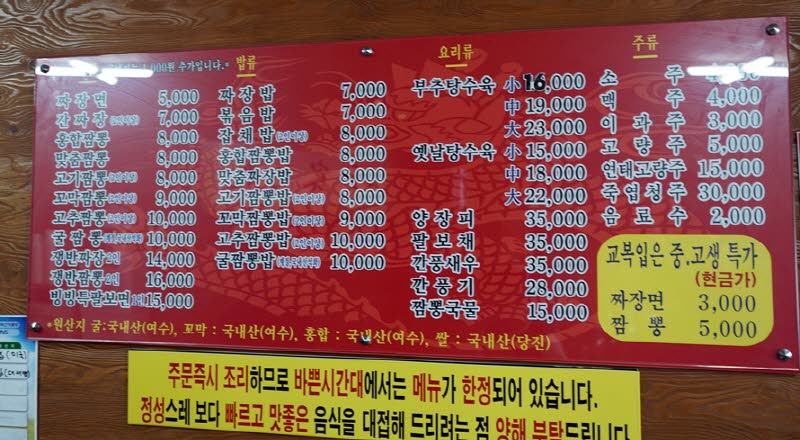 1,000원 추가입니다.*
밥류
요리류
주류
짜장면 5,000
간짜장 (2인이상) 7,000
홍합짬뽕 8,000
맛줌짬뽕 8,000
고기짬뽕 (2인이상) 8,000
꼬막짬뽕 (2인이상) 9,000
고추짬뽕 (2인이상) 10,000
굴짬뽕 10,000
쟁반짜장 2인 14,000
쟁반짬뽕 2인 16,000
빙빙특팔보면 1인 15,000
짜장밥 7,000
볶음밥 7,000
잡채밥 (2인이상) 8,000
홍합짬뽕밥 8,000
맛줌짜장밥 8,000
고기짬뽕밥 (2인이상) 8,000
꼬막짬뽕밥 (2인이상) 9,000
고추짬뽕밥 (2인이상) 10,000
굴짬뽕밥 10,000
부추탕수육 小 16,000
中 19,000
大 23,000
옛날탕수육 小 15,000
中 18,000
大 22,000
양장피 35,000
팔보채 35,000
깐풍새우 35,000
깐풍기 28,000
짬뽕국물 15,000
소주
맥주 4,000
이과주 3,000
고량주 5,000
연태고량주 15,000
죽엽청주 30,000
음료수 2,000
교복입은 중.고생 특가
(현금가)
짜장면 3,000
짬뽕 5,000
*원산지 굴:국내산(여수), 꼬막 : 국내산(여수), 홍합 : 국내산(여수), 쌀 : 국내산(당진)
주문즉시 조리하므로 바쁜시간대에서는 메뉴가 한정되어 있습니다.
정성스레 보다 빠르고 맛좋은 음식을 대접해 드리려는 점 양해 부탁드립니다